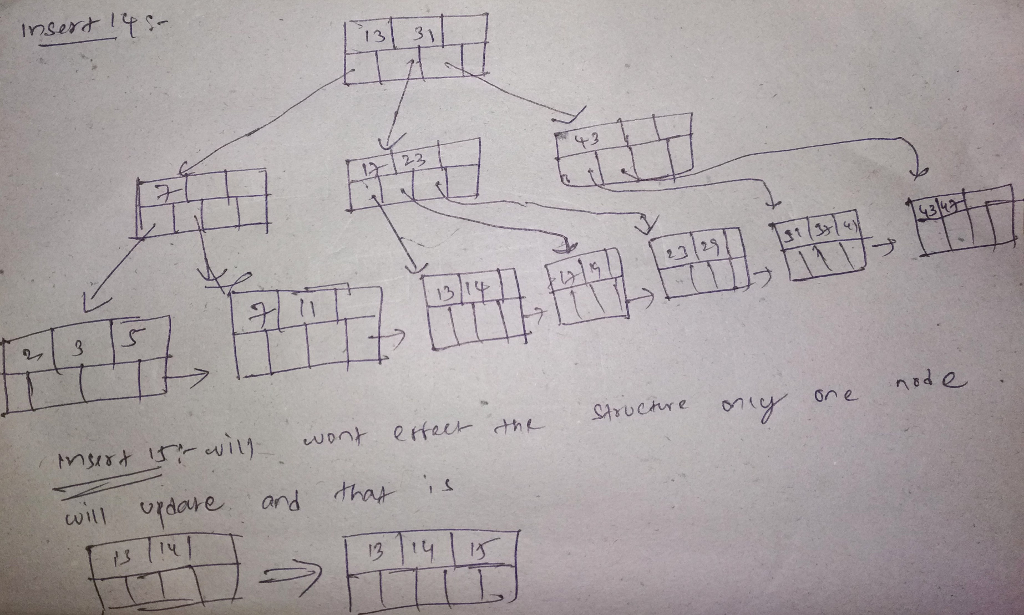 Insert 14 :-
13 31
7
17 23
43
2 3 5
7 11
13 14
17 19
23 29
31 37 41
43 47
Insert 15 :- will wont effect the structure only one node
will update and that is
13 14
13 14 15